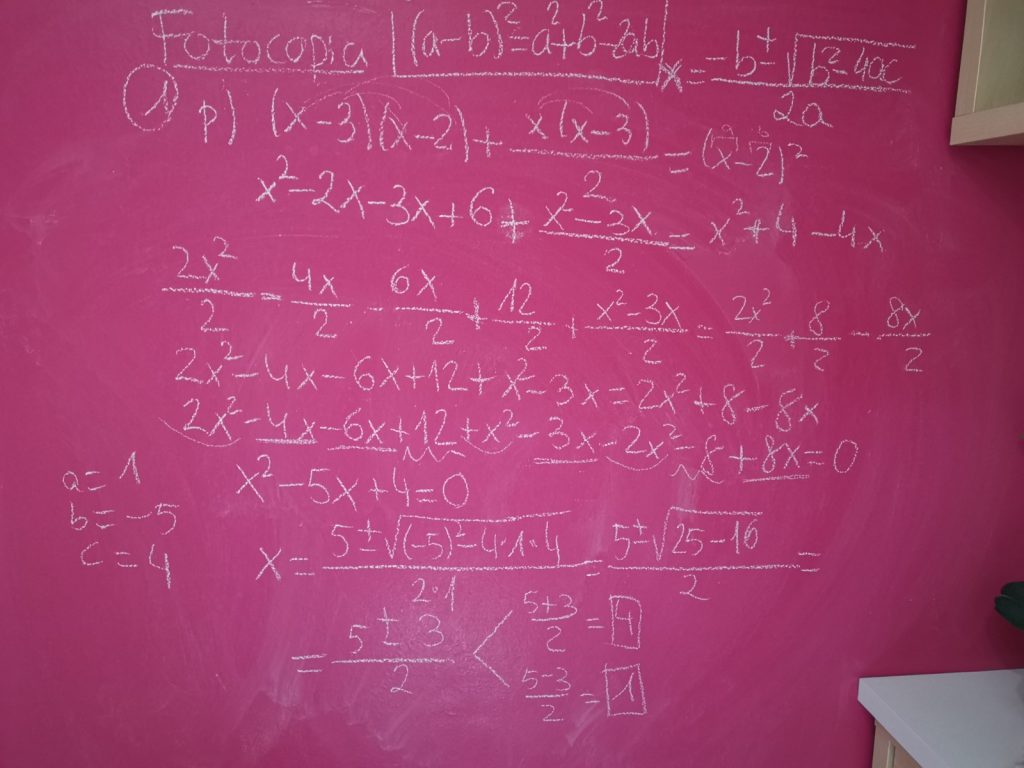 Fotocopia (a-b)²=a²+b²-2ab x = \frac{-b±\sqrt{b²-4ac}}{2a}
① p) (x-3)(x-2) + \frac{x(x-3)}{2} = (x-2)²
x²-2x-3x+6 + \frac{x²-3x}{2} = x²+4-4x
\frac{2x²}{2} - \frac{4x}{2} - \frac{6x}{2} + \frac{12}{2} + \frac{x²-3x}{2} = \frac{2x²}{2} + \frac{8}{2} - \frac{8x}{2}
2x²-4x-6x+12+x²-3x=2x²+8-8x
2x²-4x-6x+12+x²-3x-2x²-8+8x=0
x²-5x+4=0
a=1
b=-5
c=4
x = \frac{5±\sqrt{(-5)²-4·1·4}}{2·1} = \frac{5±\sqrt{25-16}}{2} =
= \frac{5±3}{2} < \frac{5+3}{2} = 4
\frac{5-3}{2} = 1